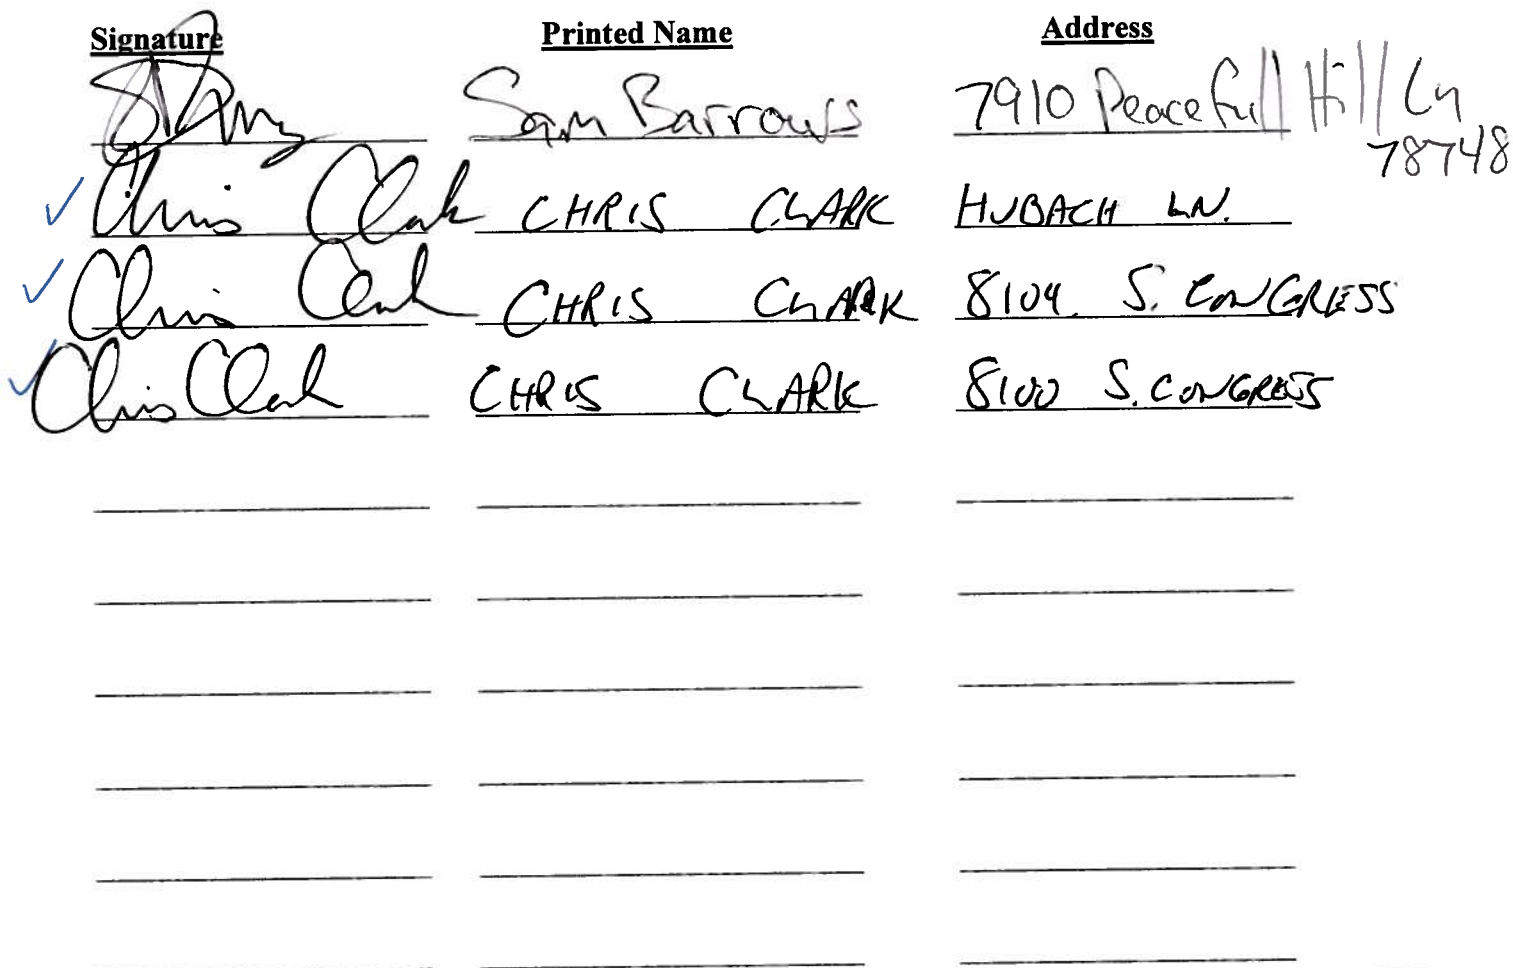 Signature Printed Name Address
Sam Barrows 7910 Peacefull Hill Ln
78748
Chris Clark CHRIS CLARK HUBACH LN.
Chris Clark CHRIS CLARK 8104. S. CONGRESS
Chris Clark CHRIS CLARK 8100 S. CONGRESS